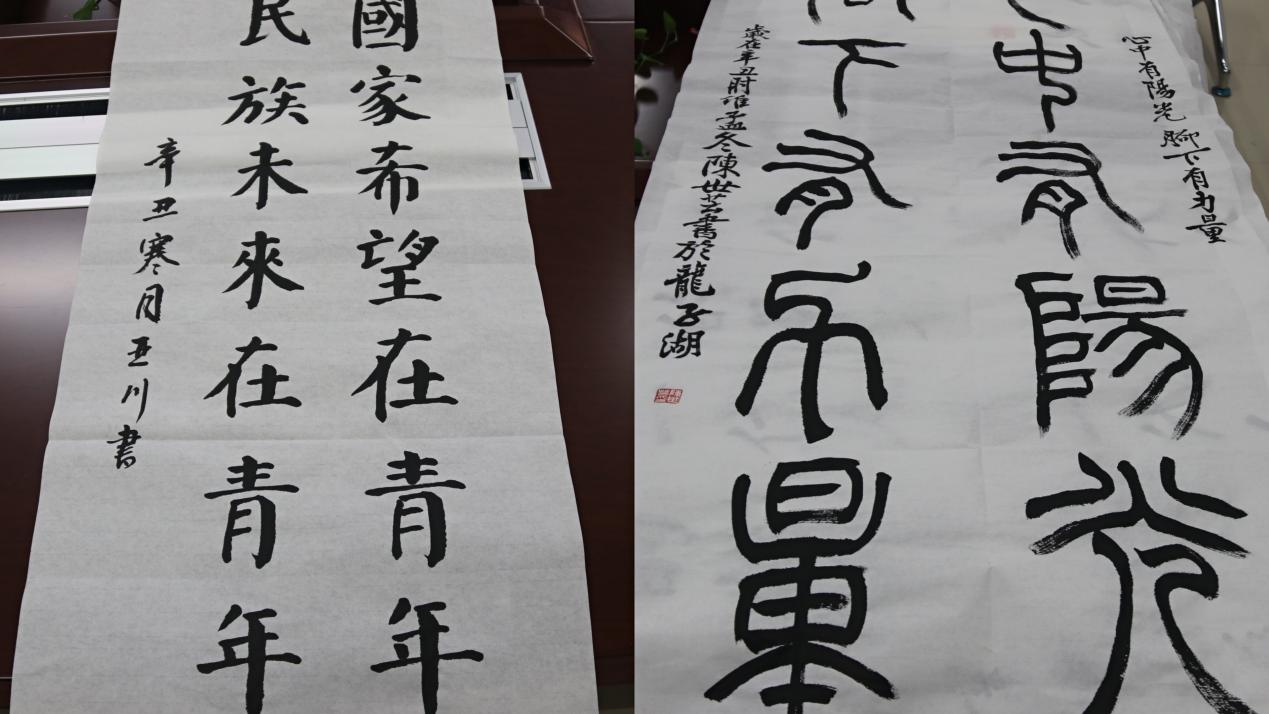 國家希望在青年
民族未來在青年
辛丑寒月亚川書
心中有陽光 腳下有力量
中有陽光
下有力量
歲在辛丑时维孟冬陳世芸書於龍子湖